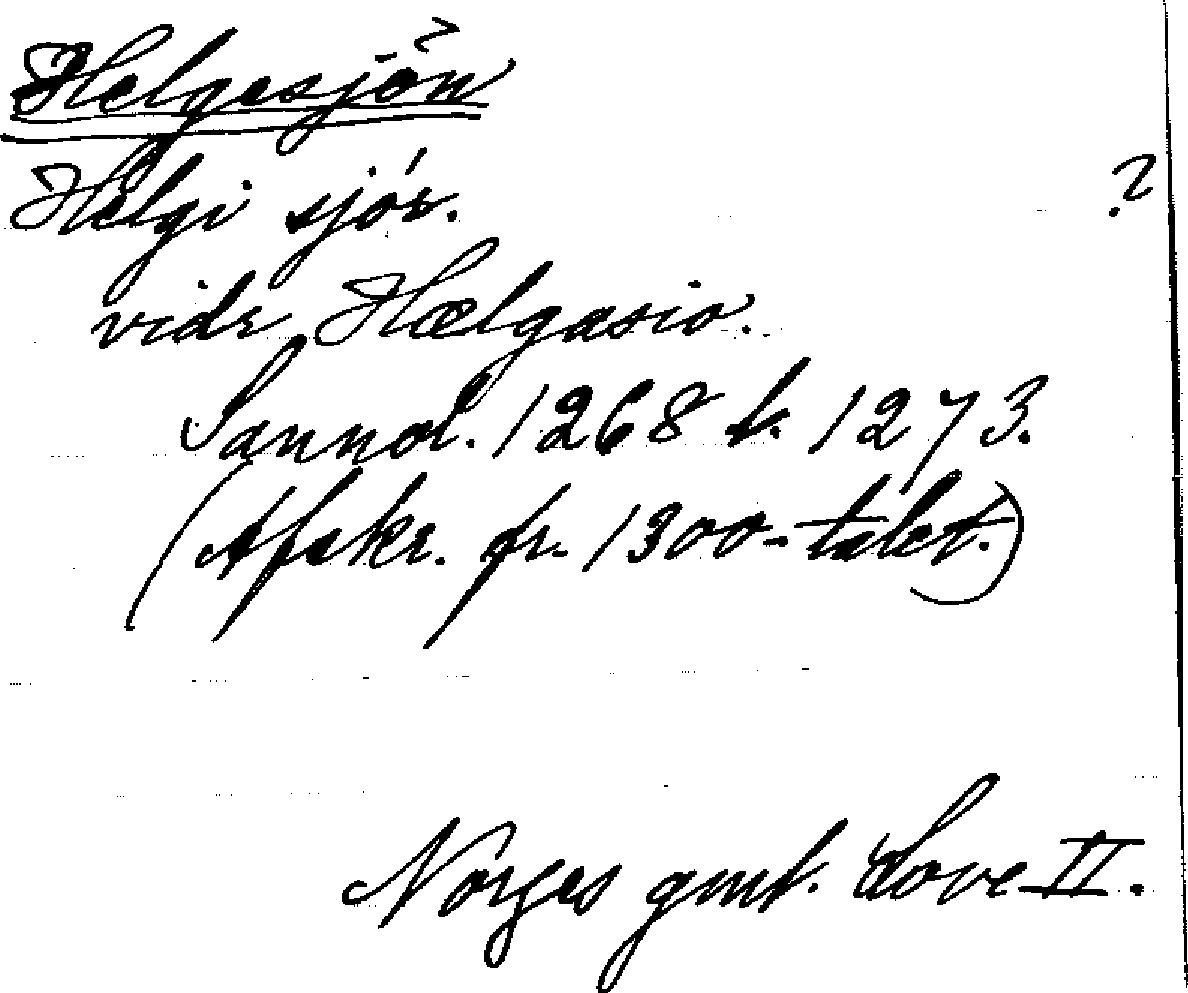 ?
Helgesjön
Helgi sjór. ?
vidr Hælgasio.
Sannol. 1268 t. 1273.
(Afskr. fr. 1300-talet.)
Norges gml. Love II.